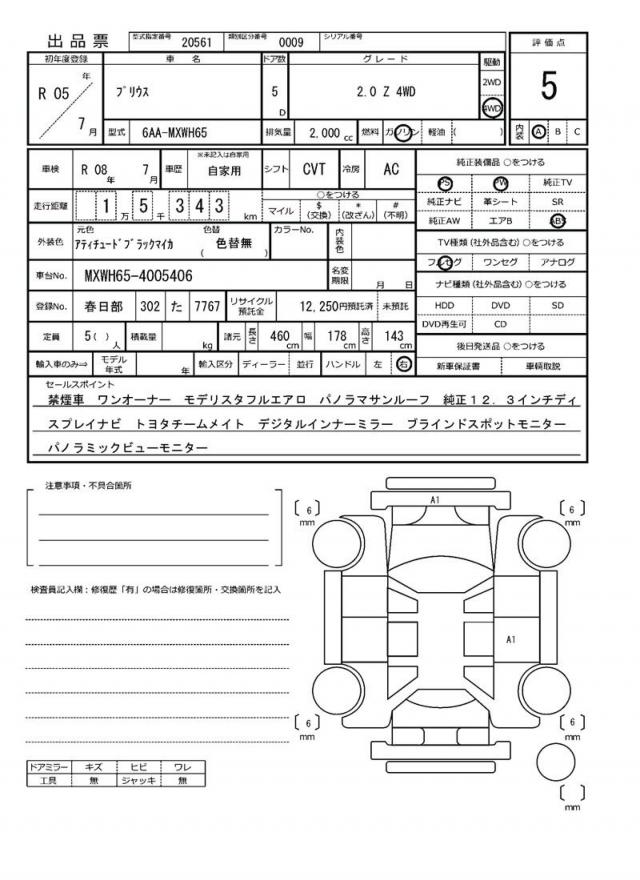 出品票 型式指定番号 20561 類別区分番号 0009 シリアル番号
評価点
5
初年度登録 車名 ドア数 グレード 駆動
R 05 年 7 月
プリウス 5 D 2.0 Z 4WD 2WD 4WD
型式 6AA-MXWH65 排気量 2,000 cc 燃料 ガソリン 軽油 ( )
内装 A B C
車検 R 08 年 7 月 車歴 ※未記入は自家用 自家用 シフト CVT 冷房 AC
走行距離 1 万 5 千 3 4 3 km
○をつける
マイル $(交換) *(改ざん) #(不明)
外装色 元色 アティチュードブラックマイカ 色替 ( 色替無 ) カラーNo. 内装色
車台No. MXWH65-4005406 名変期限 月 日
登録No. 春日部 302 た 7767 リサイクル預託金 12,250円預託済 未預託
定員 5( ) 人 積載量 kg 諸元 長さ 460 cm 幅 178 cm 高さ 143 cm
輸入車のみ⇒ モデル年式 年 輸入区分 ディーラー 並行 ハンドル 左 右
純正装備品 ○をつける
PS PW 純正TV
純正ナビ 革シート SR
純正AW エアB ABS
TV種類(社外品含む) ○をつける
フルセグ ワンセグ アナログ
ナビ種類(社外品含む) ○をつける
HDD DVD SD
DVD再生可 CD
後日発送品 ○をつける
新車保証書 車輌取説
セールスポイント
禁煙車 ワンオーナー モデリスタフルエアロ パノラマサンルーフ 純正12.3インチディ
スプレイナビ トヨタチームメイト デジタルインナーミラー ブラインドスポットモニター
パノラミックビューモニター
注意事項・不具合箇所
検査員記入欄:修復歴「有」の場合は修復箇所・交換箇所を記入
ドアミラー キズ ヒビ ワレ
工具 無 ジャッキ 無
A1
[ 6 ] mm
[ 6 ] mm
A1
[ 6 ] mm
[ 6 ] mm
[ ] mm